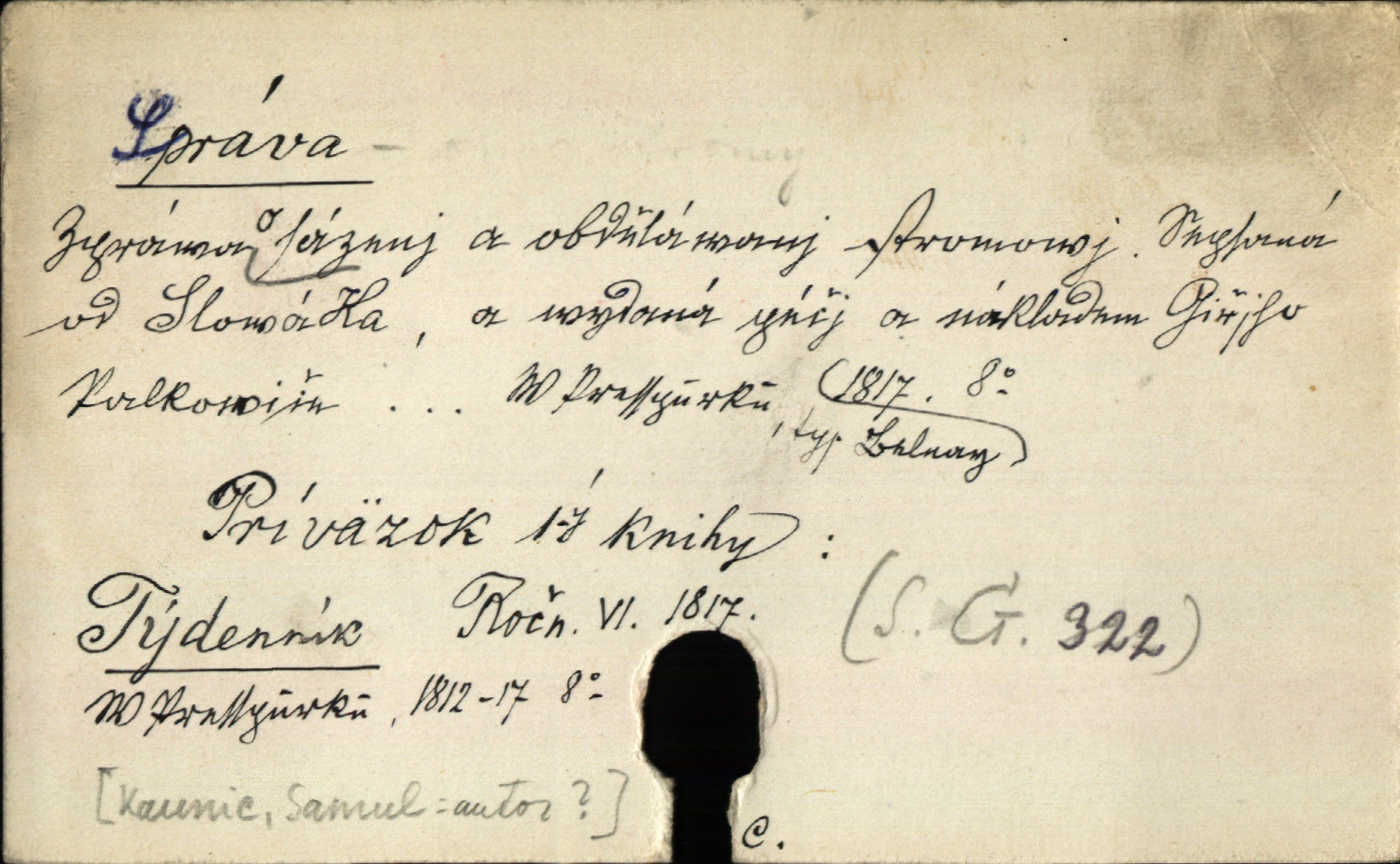 Správa -
Zpráwa o sázenj a obděláwanj stromowj. Sepsaná
od Slowáka, a wydaná péčj a nákladem Giřjho
Palkowiče ... W Presspůrku, (1817. 8°
typ. Belnay)
Príväzok 1-j knihy :
Týdenník Ročn. VI. 1817. (S. G. 322)
W Presspůrku, 1812-17 8°-
[Kaunic, Samuel = autor ?]
C.